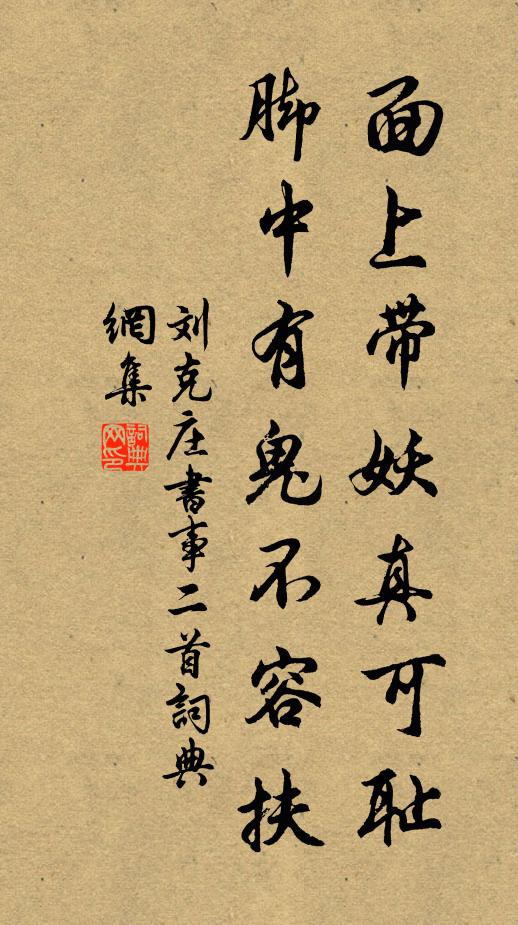 面上带妖真可耻
脚中有鬼不容扶
刘克庄書事二首詞典
網集
詞典
网印